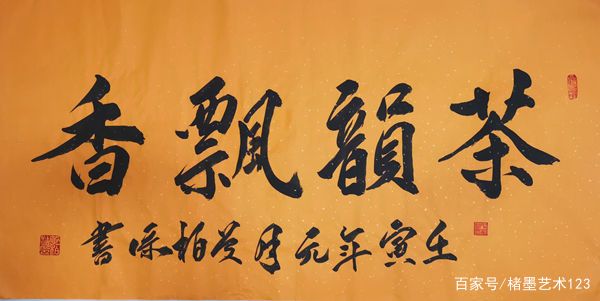 茶韻飄香
壬寅年元月柏書
百家号/楮墨艺术123